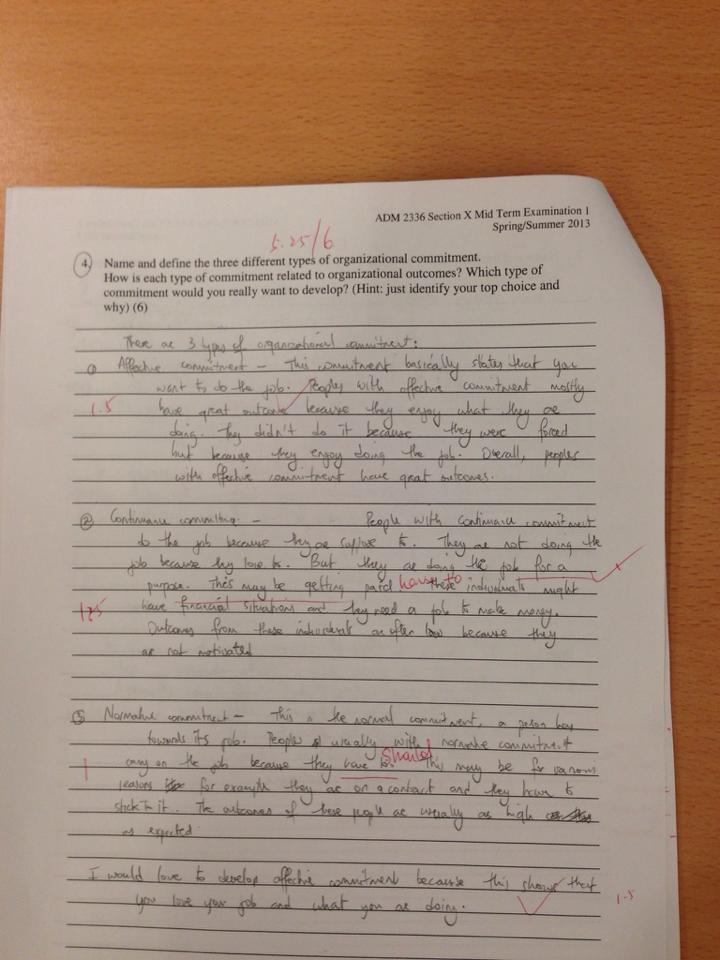 ADM 2336 Section X Mid Term Examination 1
Spring/Summer 2013
5.25/6
4. Name and define the three different types of organizational commitment.
How is each type of commitment related to organizational outcomes? Which type of
commitment would you really want to develop? (Hint: just identify your top choice and
why) (6)
There are 3 types of organizational commitment:
① Affective commitment - This commitment basically states that you
want to do the job. Peoples with affective commitment mostly
1.5 have great outcome because they enjoy what they are
doing. They didn't do it because they were forced
but because they enjoy doing the job. Overall, peoples
with affective commitment have great outcomes.
② Continuance committing - People with continuance commitment
do the job because they are suppose to. They are not doing the
job because they love to. But they are doing the job for a
purpose. This may be getting paid have to these individuals might
1.25 have financial situations and they need a job to make money.
Outcomes from these individuals are often low because they
are not motivated
③ Normative commitment - This is the normal commitment, a person has
towards its job. People usually with normative commitment
1 carry on the job because they have to should This may be for various
reasons for example they are on a contract and they have to
stick to it. The outcomes of these people are usually as high
as expected.
I would love to develop affective commitment because this shows that
you love your job and what you are doing. 1.5